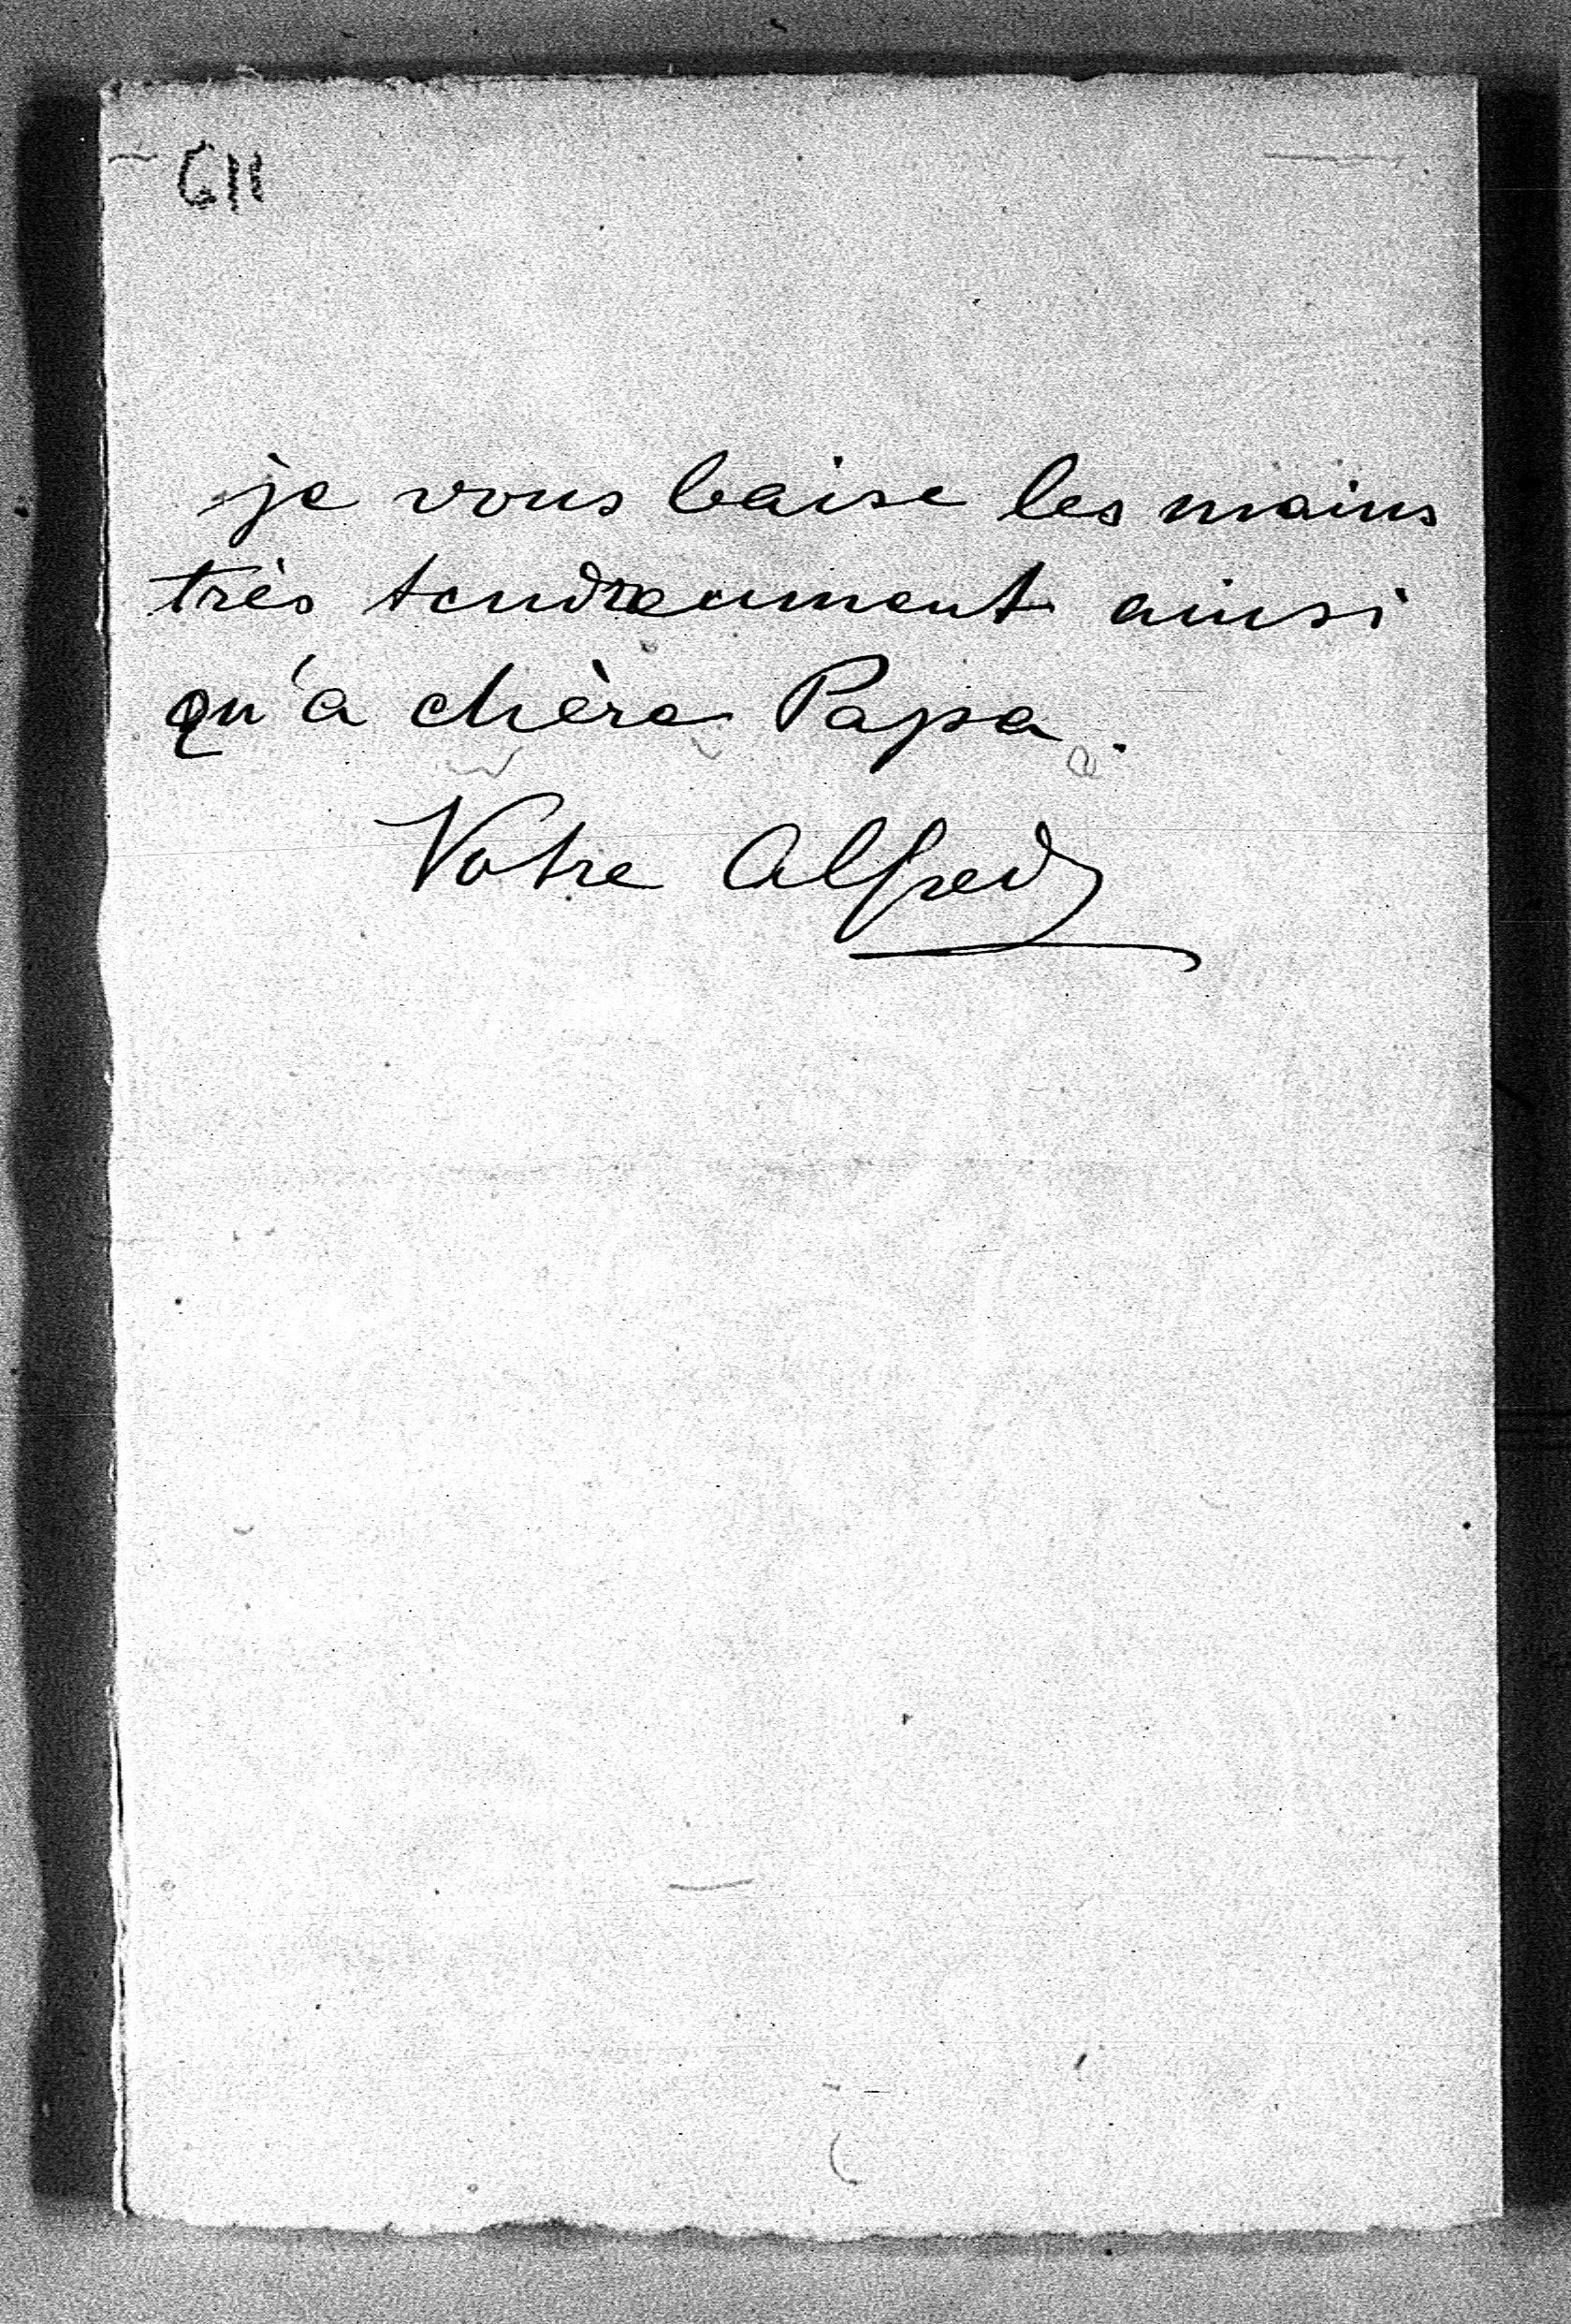 611
je vous baise les mains
très tendreument ainsi
qu'à chère Papa.
Votre Alfred